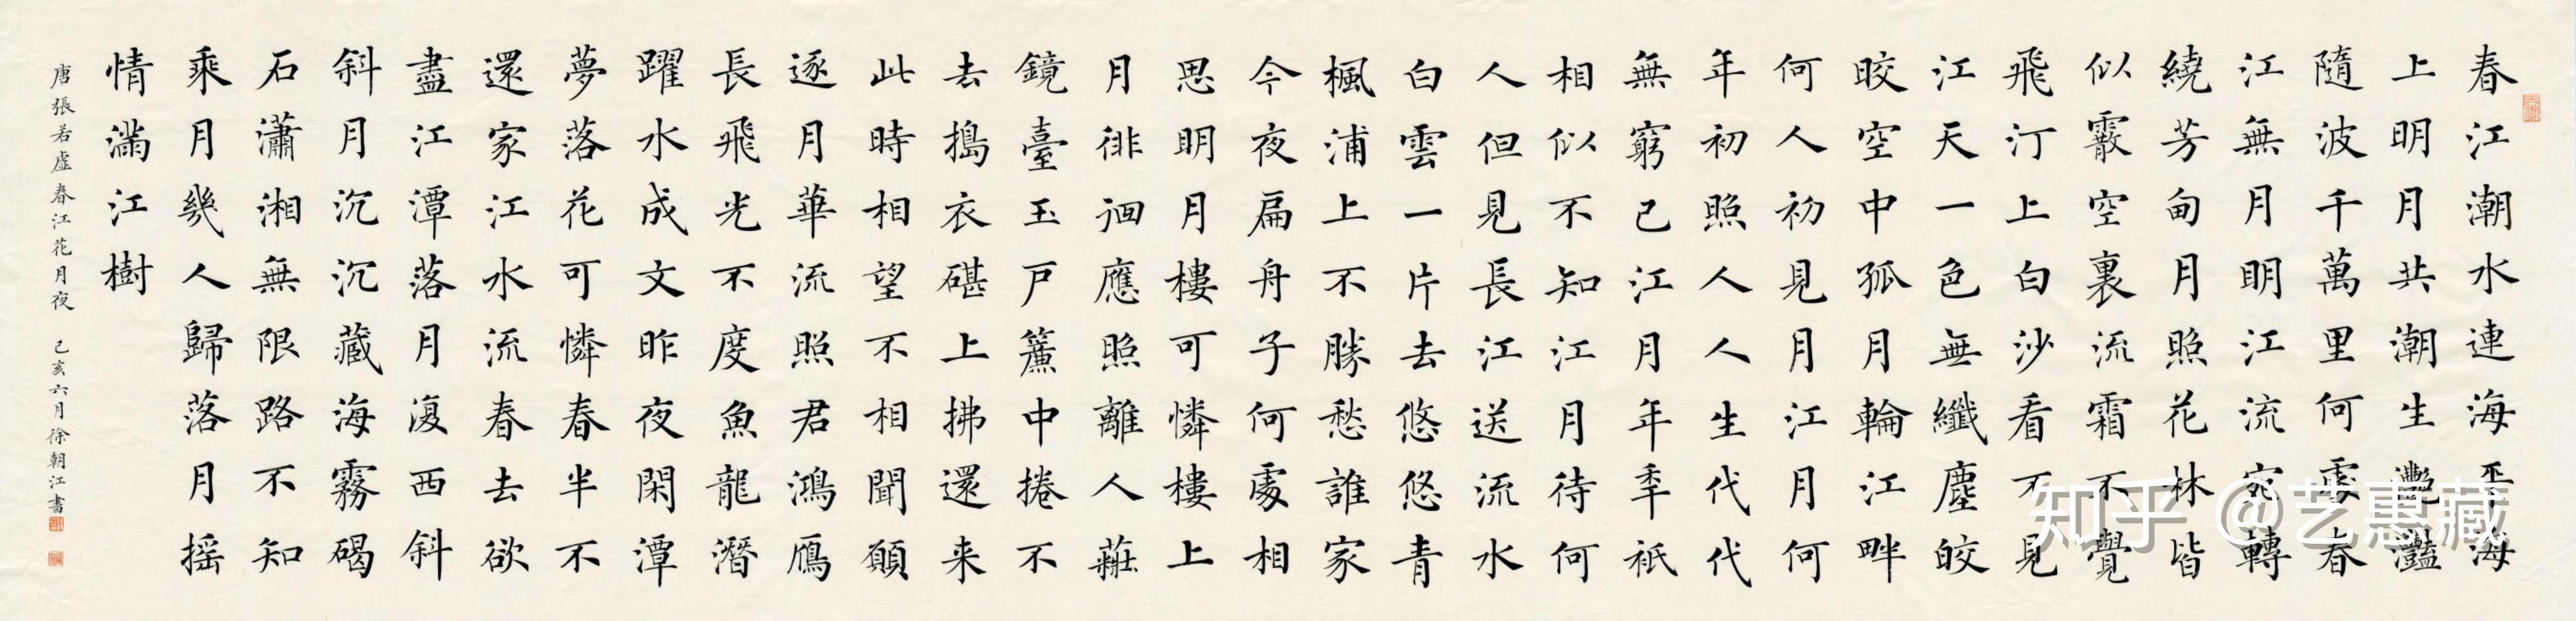 春江潮水連海平海
上明月共潮生灩灩
隨波千萬里何處春
江無月明江流宛轉
繞芳甸月照花林皆
似霰空裏流霜不覺
飛汀上白沙看不見
江天一色無纖塵皎
皎空中孤月輪江畔
何人初見月江月何
年初照人人生代代
無窮已江月年年祇
相似不知江月待何
人但見長江送流水
白雲一片去悠悠青
楓浦上不勝愁誰家
今夜扁舟子何處相
思明月樓可憐樓上
月徘徊應照離人莊
鏡臺玉戶簾中捲不
去搗衣碪上拂還来
此時相望不相聞願
逐月華流照君鴻鴈
長飛光不度魚龍潛
躍水成文昨夜閑潭
夢落花可憐春半不
還家江水流春去欲
盡江潭落月復西斜
斜月沉沉藏海霧碣
石瀟湘無限路不知
乘月幾人歸落月摇
情滿江樹
唐張若虛春江花月夜 己亥六月徐朝江書
知乎 @艺惠藏